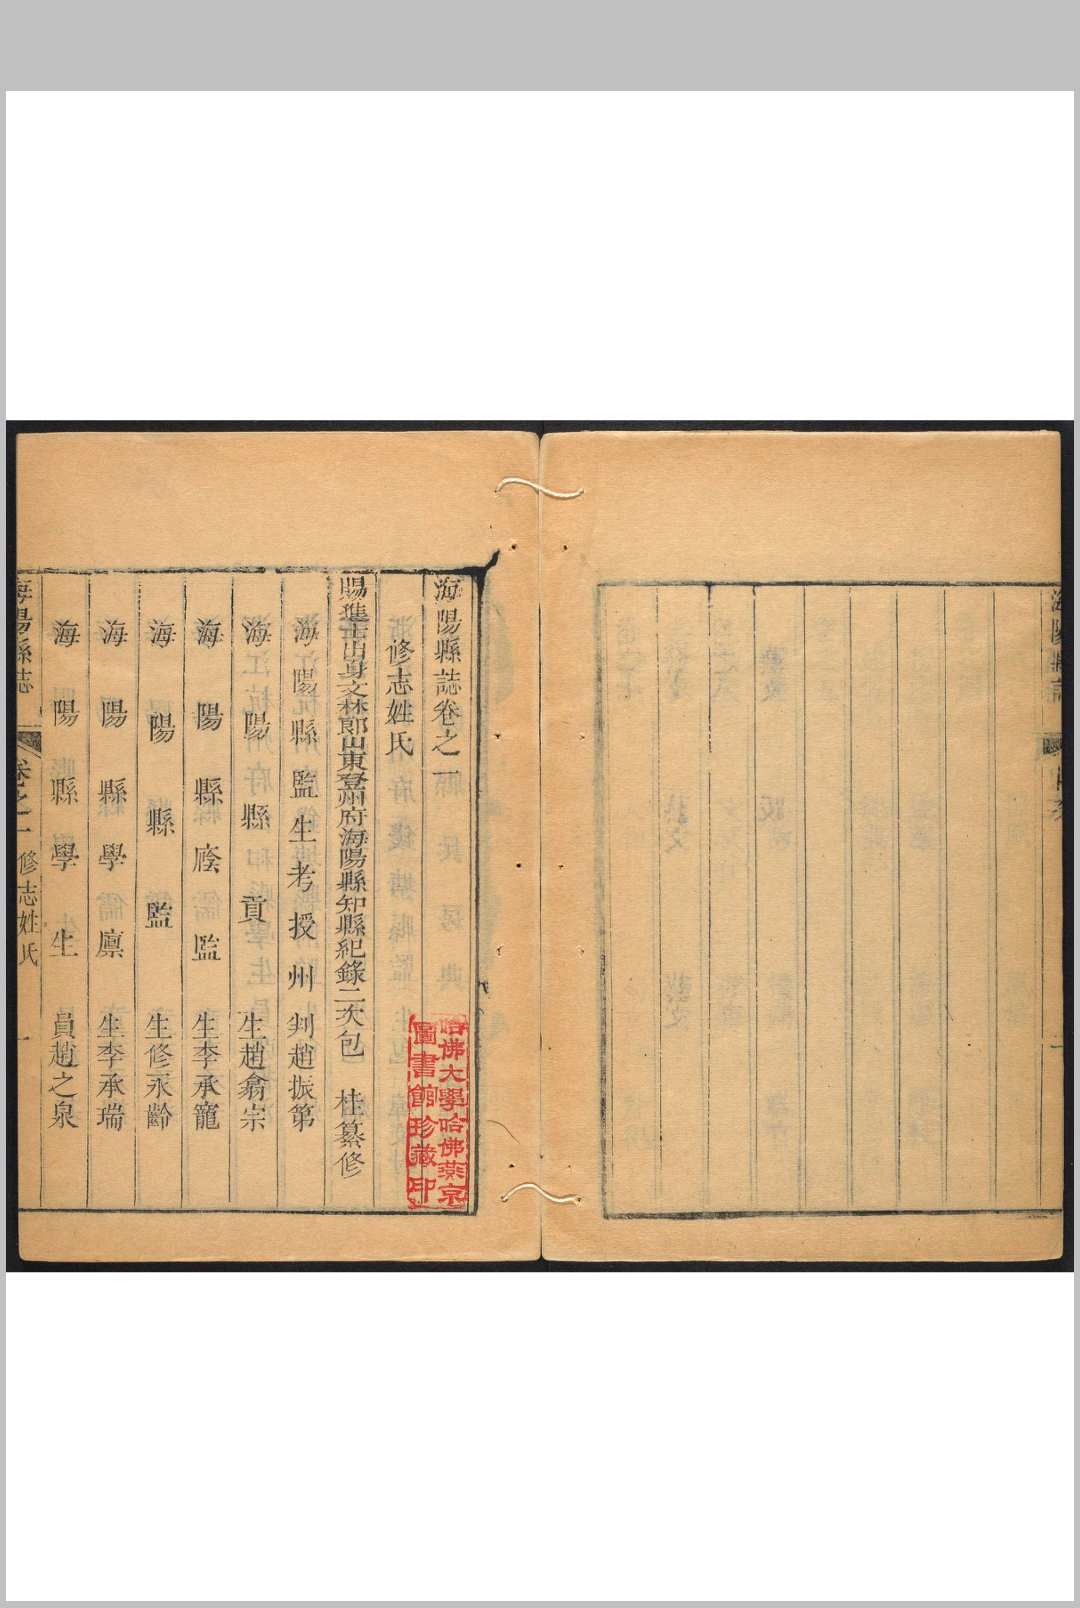 海陽縣誌卷之一
修志姓氏
賜進士出身文林郎山東登州府海陽縣知縣紀錄二次包　桂纂修
海陽縣監生考授州判趙振第
海陽縣貢生趙翕宗
海陽縣廕監生李承寵
海陽縣監生修永齡
海陽縣學廪生李承瑞
海陽縣學生員趙之泉
海陽縣志　卷之一　修志姓氏　一
哈佛大學哈佛燕京
圖書館珍藏印